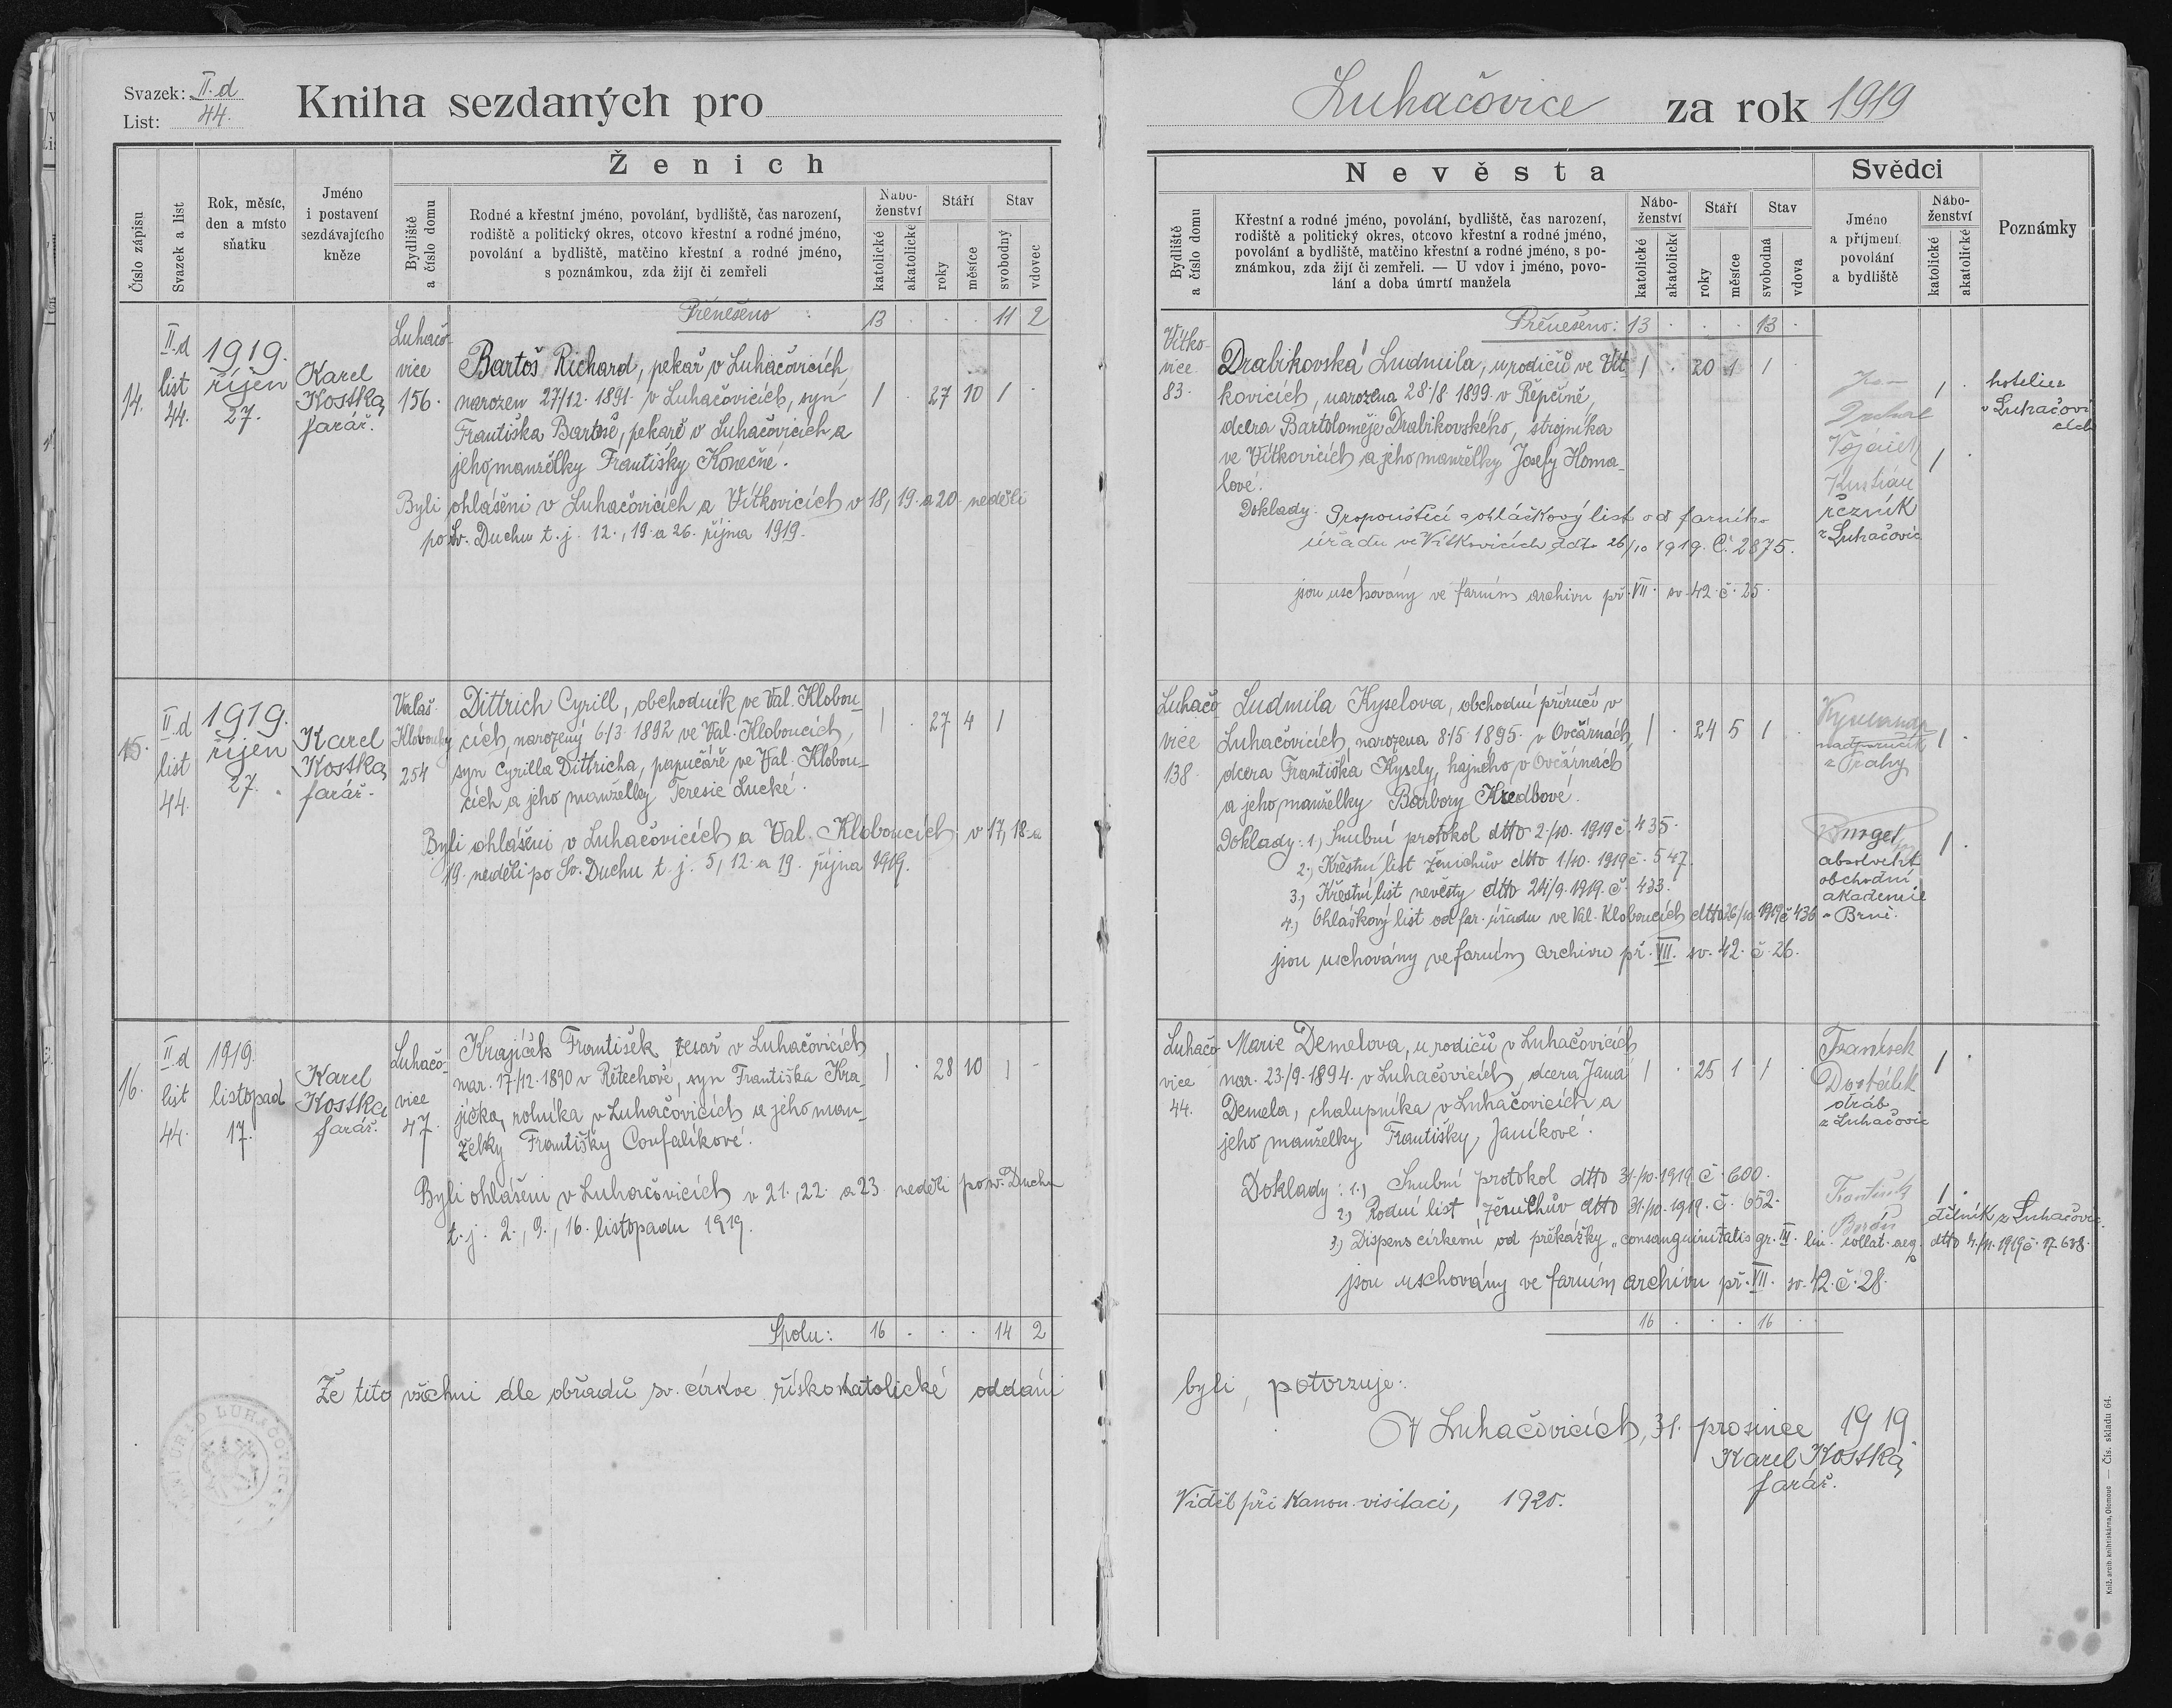 Svazek: II. d
List: 44.
Kniha sezdaných pro
Číslo zápisu
Svazek a list
Rok, měsíc,
den a místo
sňatku
Jméno
i postavení
sezdávajícího
kněze
Ženich
Bydliště
a číslo domu
Rodné a křestní jméno, povolání, bydliště, čas narození,
rodiště a politický okres, otcovo křestní a rodné jméno,
povolání a bydliště, matčino křestní a rodné jméno,
s poznámkou, zda žijí či zemřeli
Nábo-
ženství
katolické
akatolické
Stáří
roky
měsíce
Stav
svobodný
vdovec
Přeneseno : 13 . . . 11 2
14.
II. d
list
44.
1919.
říjen
27.
Karel
Kostka,
farář.
Luhačo-
vice
156.
Bartoš Richard, pekař v Luhačovicích
narozen 27/12. 1891. v Luhačovicích, syn
Františka Bartoše, pekaře v Luhačovicích a
jeho manželky Františky Konečné.
1 . 27 10 1 .
Byli ohlášeni v Luhačovicích a Vítkovicích v 18, 19. a 20. neděli
po Sv. Duchu t. j. 12., 19. a 26. října 1919.
15.
II. d
list
44.
1919.
říjen
27.
Karel
Kostka,
farář.
Valaš.
Klobouky
254
Dittrich Cyrill, obchodník ve Val. Klobou-
cích, narozený 6/3. 1892 ve Val. Kloboucích,
syn Cyrilla Dittricha, papučáře ve Val. Klobou-
cích a jeho manželky Teresie Lucké.
1 . 27 4 1
Byli ohlášeni v Luhačovicích a Val. Kloboucích v 17, 18. a
19. neděli po Sv. Duchu t. j. 5, 12. a 19. října 1919.
16.
II. d
list
44.
1919.
listopad
17.
Karel
Kostka
farář.
Luhačo-
vice
47.
Krajíček František, tesař v Luhačovicích
nar. 17./12. 1890 v Řetechově, syn Františka Kra-
jíčka, rolníka v Luhačovicích a jeho man-
želky Františky Coufalíkové.
1 . 28 10 1 -
Byli ohlášeni v Luhačovicích v 21., 22. a 23 neděli po sv. Duchu
t. j. 2., 9., 16. listopadu 1919.
Spolu: 16 . . . 14 2
Že tito všichni dle obřadů sv. církve římskokatolické oddáni
Luhačovice za rok 1919
Nevěsta
Bydliště
a číslo domu
Křestní a rodné jméno, povolání, bydliště, čas narození,
rodiště a politický okres, otcovo křestní a rodné jméno,
povolání a bydliště, matčino křestní a rodné jméno, s po-
známkou, zda žijí či zemřeli. — U vdov i jméno, povo-
lání a doba úmrtí manžela
Nábo-
ženství
katolické
akatolické
Stáří
roky
měsíce
Stav
svobodná
vdova
Svědci
Jméno
a příjmení,
povolání
a bydliště
Nábo-
ženství
katolické
akatolické
Poznámky
Přenešeno: 13 . . . 13 .
Vítko-
vice
83.
Drabikovská Ludmila, u rodičů ve Vít-
kovicích, narozena 28./8. 1899. v Řepčíně,
dcera Bartoloměje Drabikovského, strojníka
ve Vítkovicích a jeho manželky Josefy Homa-
lové.
1 . 20 1 1 .
Doklady: Propouštěcí a ohláškový list od farního
úřadu ve Vítkovicích ddto 26/10 1919. Č. 2875.
jsou uschovány ve farním archivu př. VII. sv. 42. č. 25.
1 . hotelier
v Luhačovi
cích
1 .
řezník
z Luhačovic
Luhačo
vice
138.
Ludmila Kyselova, obchodní příručí v
Luhačovicích, narozena 8./5. 1895. v Ovčárnách,
dcera Františka Kysely, hajného v Ovčárnách
a jeho manželky Barbory Kredbové.
1 . 24 5 1 .
Doklady: 1., Snubní protokol dtto 2./10. 1919 č. 435.
2., Křestní list ženichův dtto 1/10. 1919 č. 547.
3., Křestní list nevěsty dtto 24/9. 1919. č. 433.
4., Ohláškový list od far. úřadu ve Val. Kloboucích dtto 26/10. 1919 č 436
jsou uschovány ve farním archivu př. VII. sv. 42. č. 26.
nadporučík
z Prahy
1 .
absolvent
obchodní
akademie
v Brně.
1 .
Luhačo
vice
44.
Marie Demelova, u rodičů v Luhačovicích
nar. 23./9. 1894. v Luhačovicích, dcera Jana
Demela, chalupníka v Luhačovicích a
jeho manželky Františky Janíkové.
1 . 25 1 1 .
Doklady: 1., Snubní protokol dtto 31./10. 1919. č. 600.
2., Rodní list ženichův dtto 31/10. 1919. č. 652.
3., Dispens církevní od překážky „consanguinitatis gr. III. lin. collat. aeq. dtto 4./11. 1919 č. 17.638.
jsou uschovány ve farním archivu př. VII. sv. 42. č. 28.
František
Dostálek
dráb
z Luhačovic
1 .
František
1 .
dělník z Luhačovic.
16 . . . 16 .
byli, potvrzuje:
V Luhačovicích, 31. prosince 1919
Karel Kostka,
farář.
Viděl při kanon. visitaci, 1920.
Kníž. arcib. knihtiskárna, Olomouc — Čís. skladu 64.